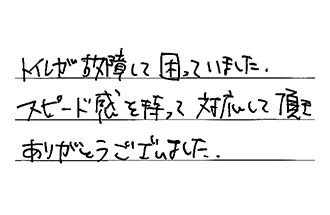 トイレが故障して困っていました.
スピード感を持って対応して頂き
ありがとうございました.